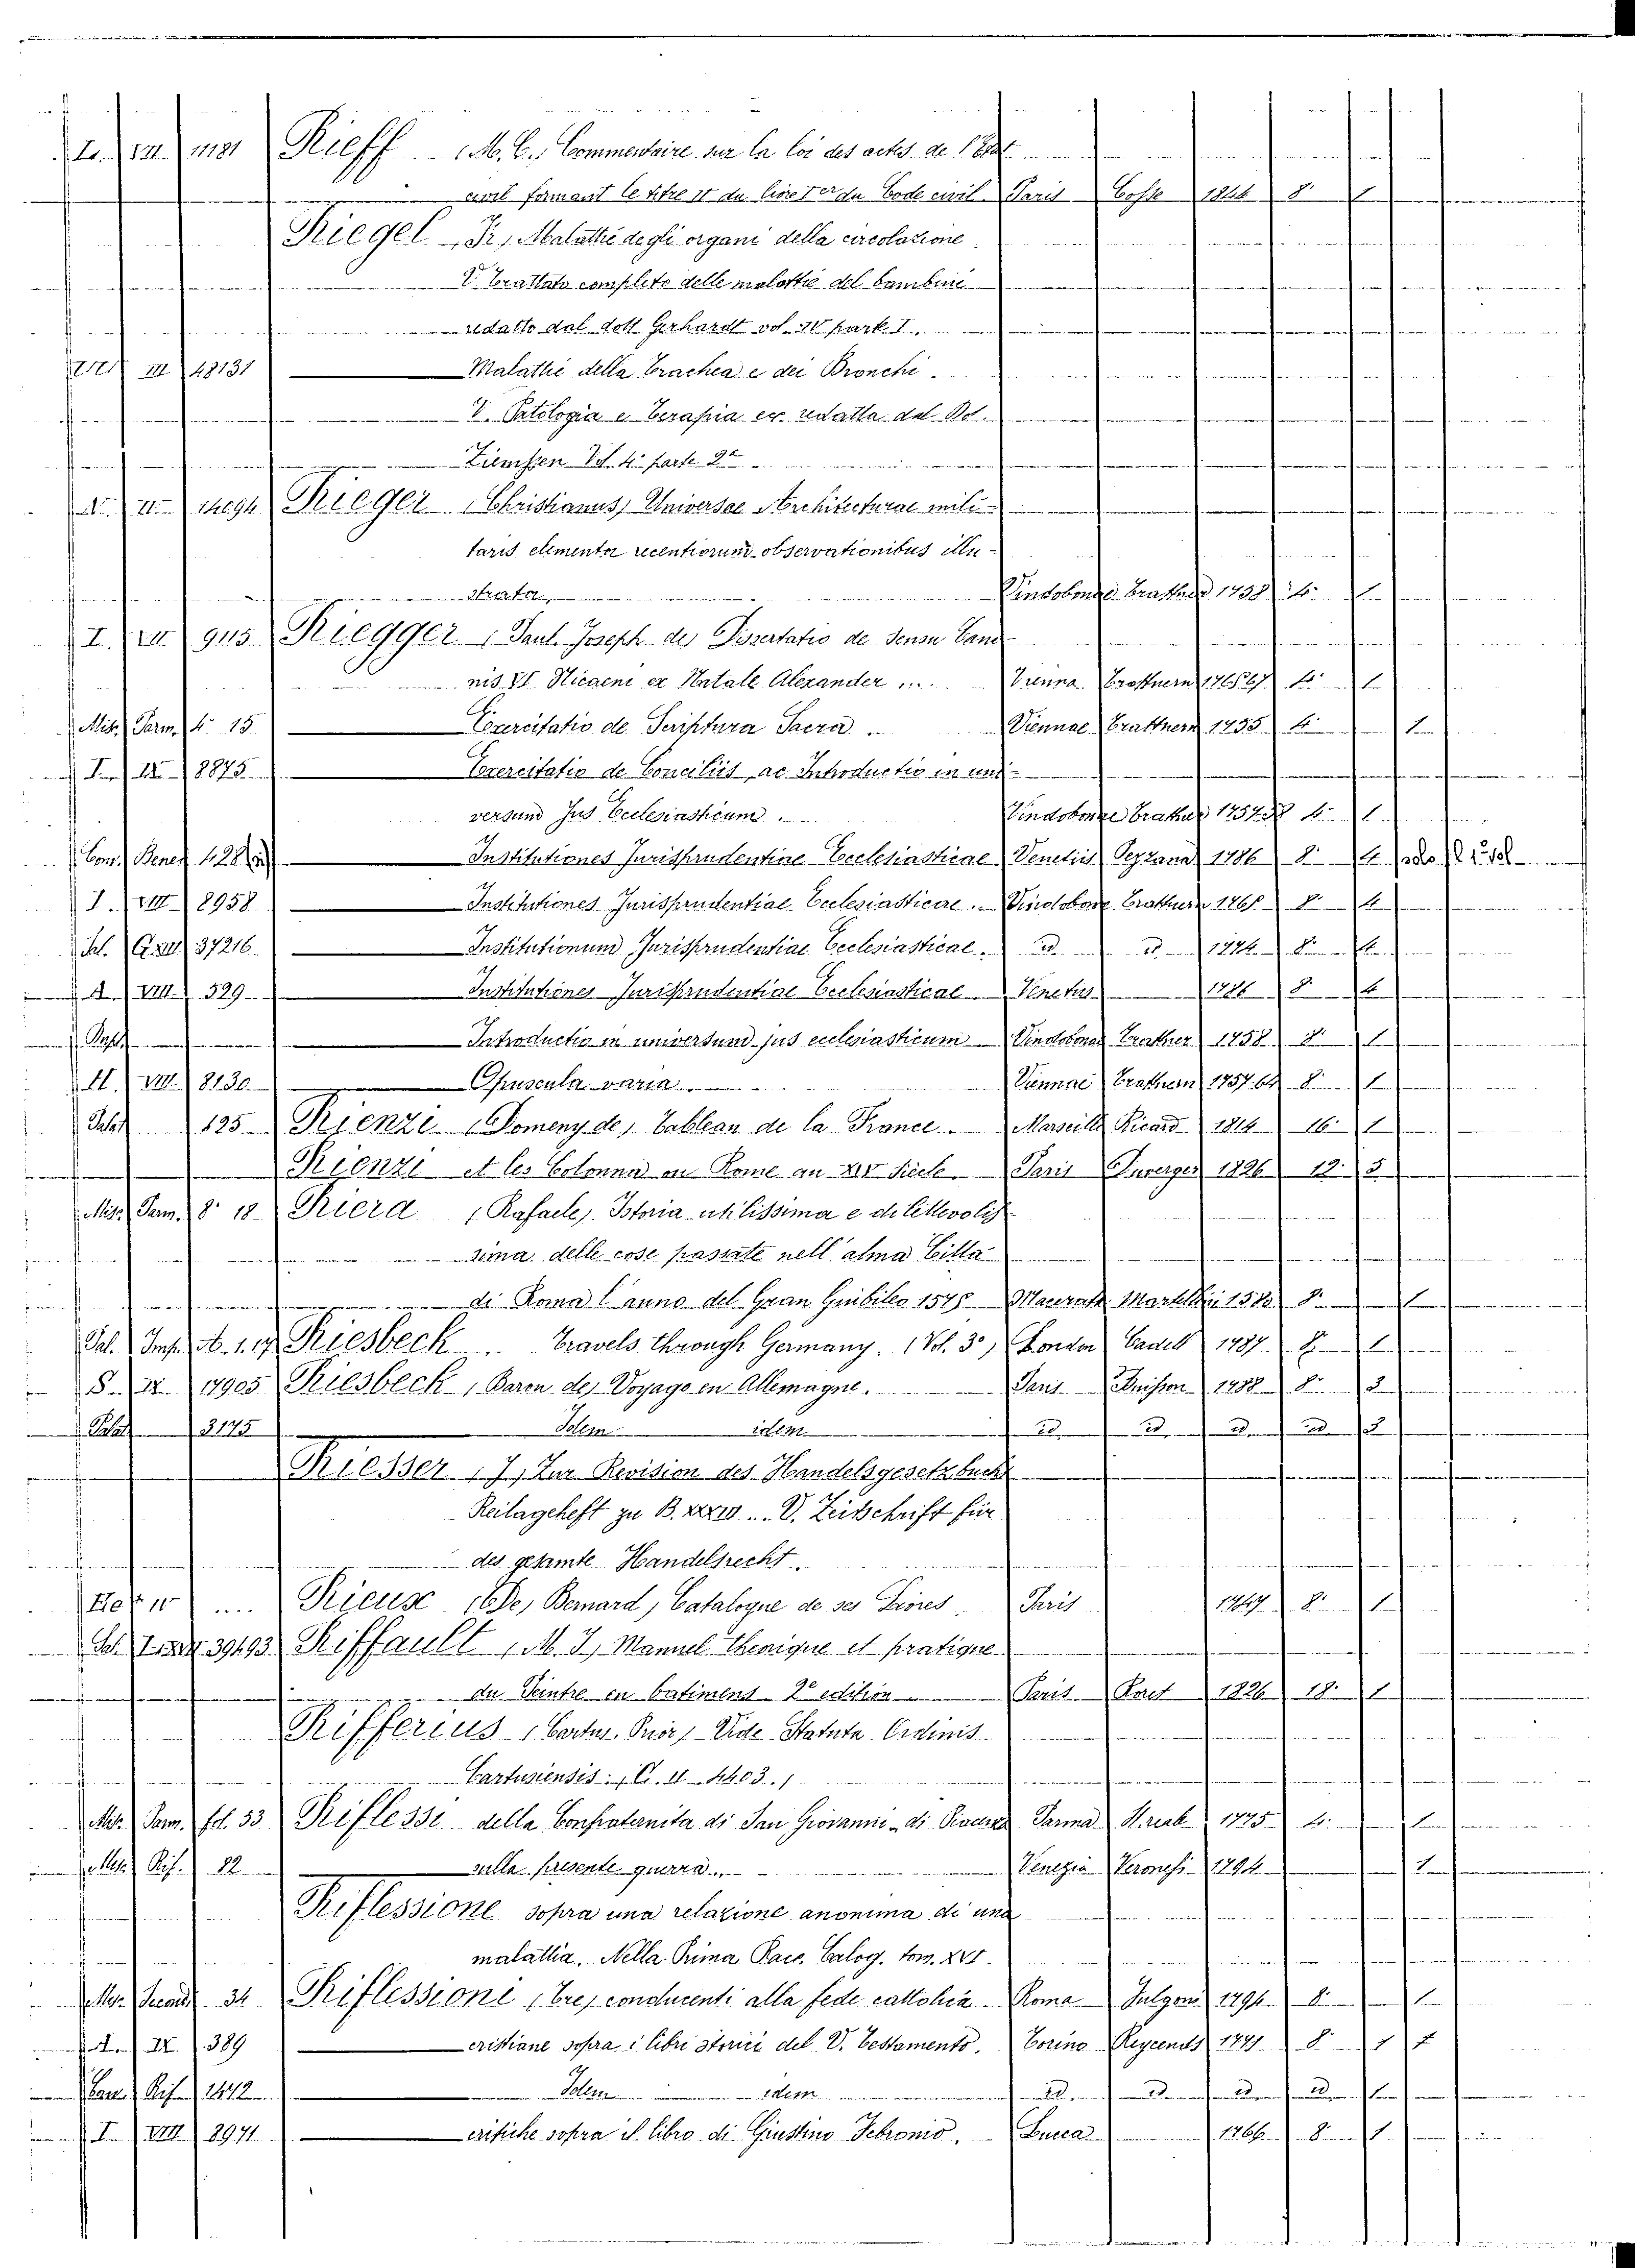 Rieff (M. C.) Commentaire sur la loi des actes de l'Etat
civil formant le titre II du livre Ier du Code civil Paris Cosse 1844 8° 1
Riegel, Fr., Malattie degli organi della circolazione
V. Trattato completo delle malattie dei bambini
redatto dal dott Gerhardt vol. IV parte I.
III 48131 Malattie della Trachea e dei Bronchi.
V. Patologia e Terapia ec redatta dal Dot.
Ziemssen Vol. 4° parte 2a
14094 Rieger (Christianus) Universae Architecturae mili-
taris elementa recentiorum observationibus illu-
strata, Vindobonae Trattner 1758 4° 1
I. 945 Riegger (Paul Joseph de) Dissertatio de Sensu Cano-
nis VI Nicaeni ex Natale Alexander ... Vienna Trattnern 4° 1
Misc. Parm. 4° 15 Exercitatio de Scriptura Sacra . Viennae Trattnern 1755 4° 1
I. 8875 Exercitatio de Conciliis, ac Introductio in uni-
versum Jus Ecclesiasticum . Vindobonae Trattner 4° 1
Com. Benef. 428 Institutiones Jurisprudentiae Ecclesiasticae Venetiis Pezzana 1786 8° 4
I. VIII 8958 Institutiones Jurisprudentiae Ecclesiasticae . Vindobonae Trattnern 8° 4
37216 Institutionum Jurisprudentiae Ecclesiasticae. id. id. 1774 8° 4
A. VIII. 529 Institutiones Jurisprudentiae Ecclesiasticae Venetiis 1786 8° 4
Introductio in universum jus ecclesiasticum Vindobonae Trattner 1758 8° 1
VIII. 8130 Opuscula varia Viennae Trattnern 8° 1
Palat 125 Rienzi (Domeny de) Tableau de la France. Marseille Ricard 1814 16° 1
Rienzi et les Colonna ou Rome au XIV Siecle. Paris Duverger 1826 12° 5
Misc. Parm. 8° 18 Riera (Rafaele). Istoria utilissima e dilettevolis-
sima delle cose passate nell'alma Citta
di Roma l'anno del Gran Giubileo 1575 Macerata Martellini 1580 8° 1
Riesbeck . Travels through Germany. (Vol. 3°) London Cadell 1787 8° 1
17905 Riesbeck, Baron de, Voyage en Allemagne. Paris Buisson 1788 8° 3
Palat 3175 Idem idem id. id. id. id. 3
Riesser (J.) Zur Revision des Handelsgesetzbuchs
Beilageheft zu B. ... V. Zeitschrift für
das gesamte Handelsrecht.
Rieux (De) Bernard, Catalogue de ses Livres. Paris 8° 1
39493 Riffault (M. J.) Manuel theorique et pratique
du Peintre en batimens 2e edition Paris Roret 1826 18° 1
Rifferius (Cartus. Prior) Vide Statuta Ordinis
Cartusiensis: (C. II 4403.)
Misc. Parm. fol. 33 Riflessi della Confraternita di San Giovanni di Parma 1775 4° 1
Rif. 82 sulla presente guerra. Venezia Veronesi 1794 1
Riflessione sopra una relazione anonima di una
malattia. Nella Prima Racc. Calog. tom. XVI.
34 Riflessioni (Tre) conducenti alla fede cattolica. Roma Fulgoni 1794 8° 1
A. IX. 389 cristiane sopra i libri storici del V. Testamento. Torino Reycends 8° 7
Rif. 1472 Idem idem id. id. id. id.
I. VIII 8971 critiche sopra il libro di Giustino Febronio. Lucca 1766 8° 1